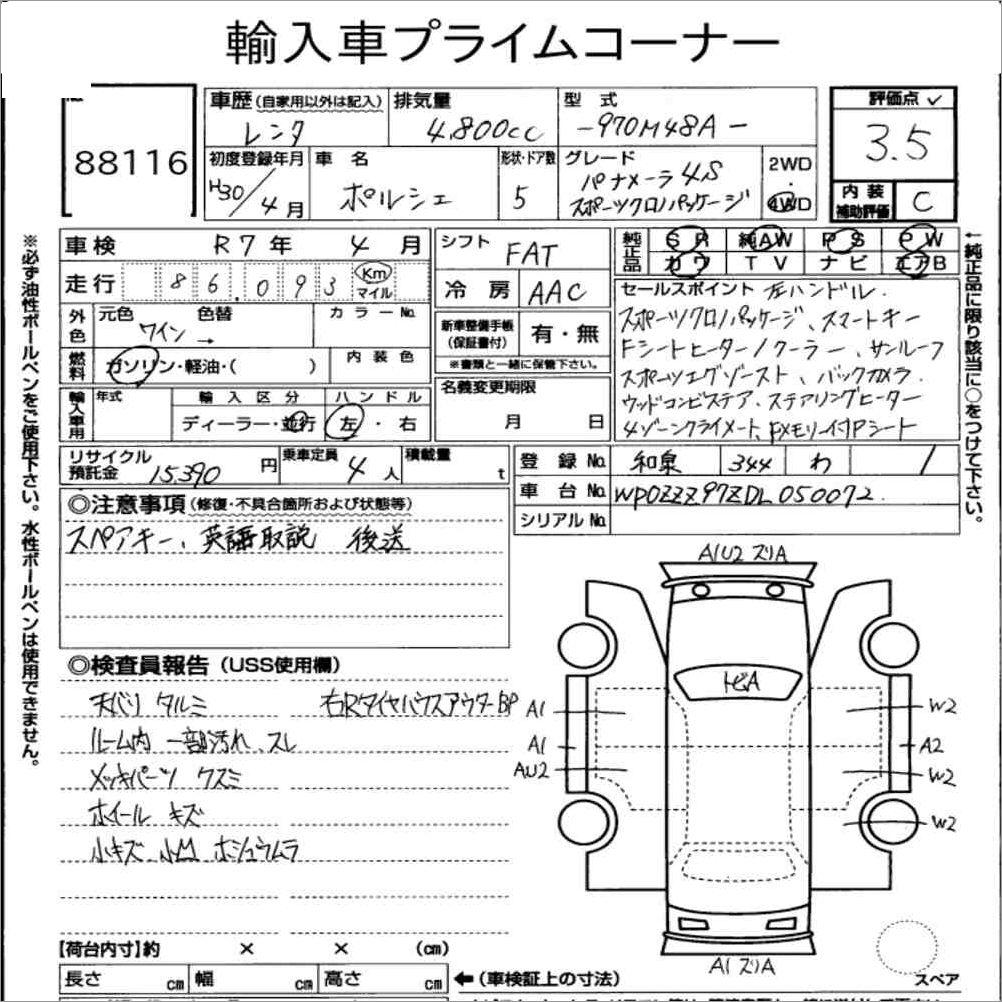 輸入車プライムコーナー
88116
車歴(自家用以外は記入) 排気量 型式 評価点 ✓
レンタ 4.800cc -970M48A- 3.5
初度登録年月 車名 形状・ドア数 グレード 2WD・4WD 内装補助評価 C
H30/4月 ポルシェ 5 パナメーラ 4S
スポーツクロノパッケージ
車検 R7年 4月 シフト FAT 純正品 SR 純AW PS PW
カワ TV ナビ エアB
走行 86.093 Km マイル 冷房 AAC
外色 元色 色替 カラーNo.
ワイン →
新車整備手帳(保証書付) 有・無
※書類と一緒に保管下さい。
燃料 ガソリン・軽油・( ) 内装色
名義変更期限
月 日
輸入車用 年式 輸入区分 ハンドル
ディーラー・並行 左・右
セールスポイント 左ハンドル.
スポーツクロノパッケージ、スマートキー
Fシートヒーター/クーラー、サンルーフ
スポーツエグゾースト、バックカメラ.
ウッドコンビステア、ステアリングヒーター
4ゾーンクライメート、メモリー付Pシート
リサイクル預託金 15.390円 乗車定員 4人 積載量 t
登録No. 和泉 344 わ 1
車台No. WP0ZZZ97ZDL050072.
シリアルNo.
◎注意事項(修復・不具合箇所および状態等)
スペアキー、英語取説 後送
◎検査員報告(USS使用欄)
天バリ タルミ 右RタイヤハウスアウターBP
ルーム内 一部汚れ.スレ
メッキパーツ クスミ
ホイール キズ
小キズ 小凹 ホシュウムラ
A1U2 スリA
トビA
A1
A1
AU2
W2
A2
W2
W2
A1 スリA
スペア
【荷台内寸】約 × × (cm)
長さ cm 幅 cm 高さ cm ←(車検証上の寸法)
※必ず油性ボールペンをご使用下さい。水性ボールペンは使用できません。
←純正品に限り該当に○をつけて下さい。